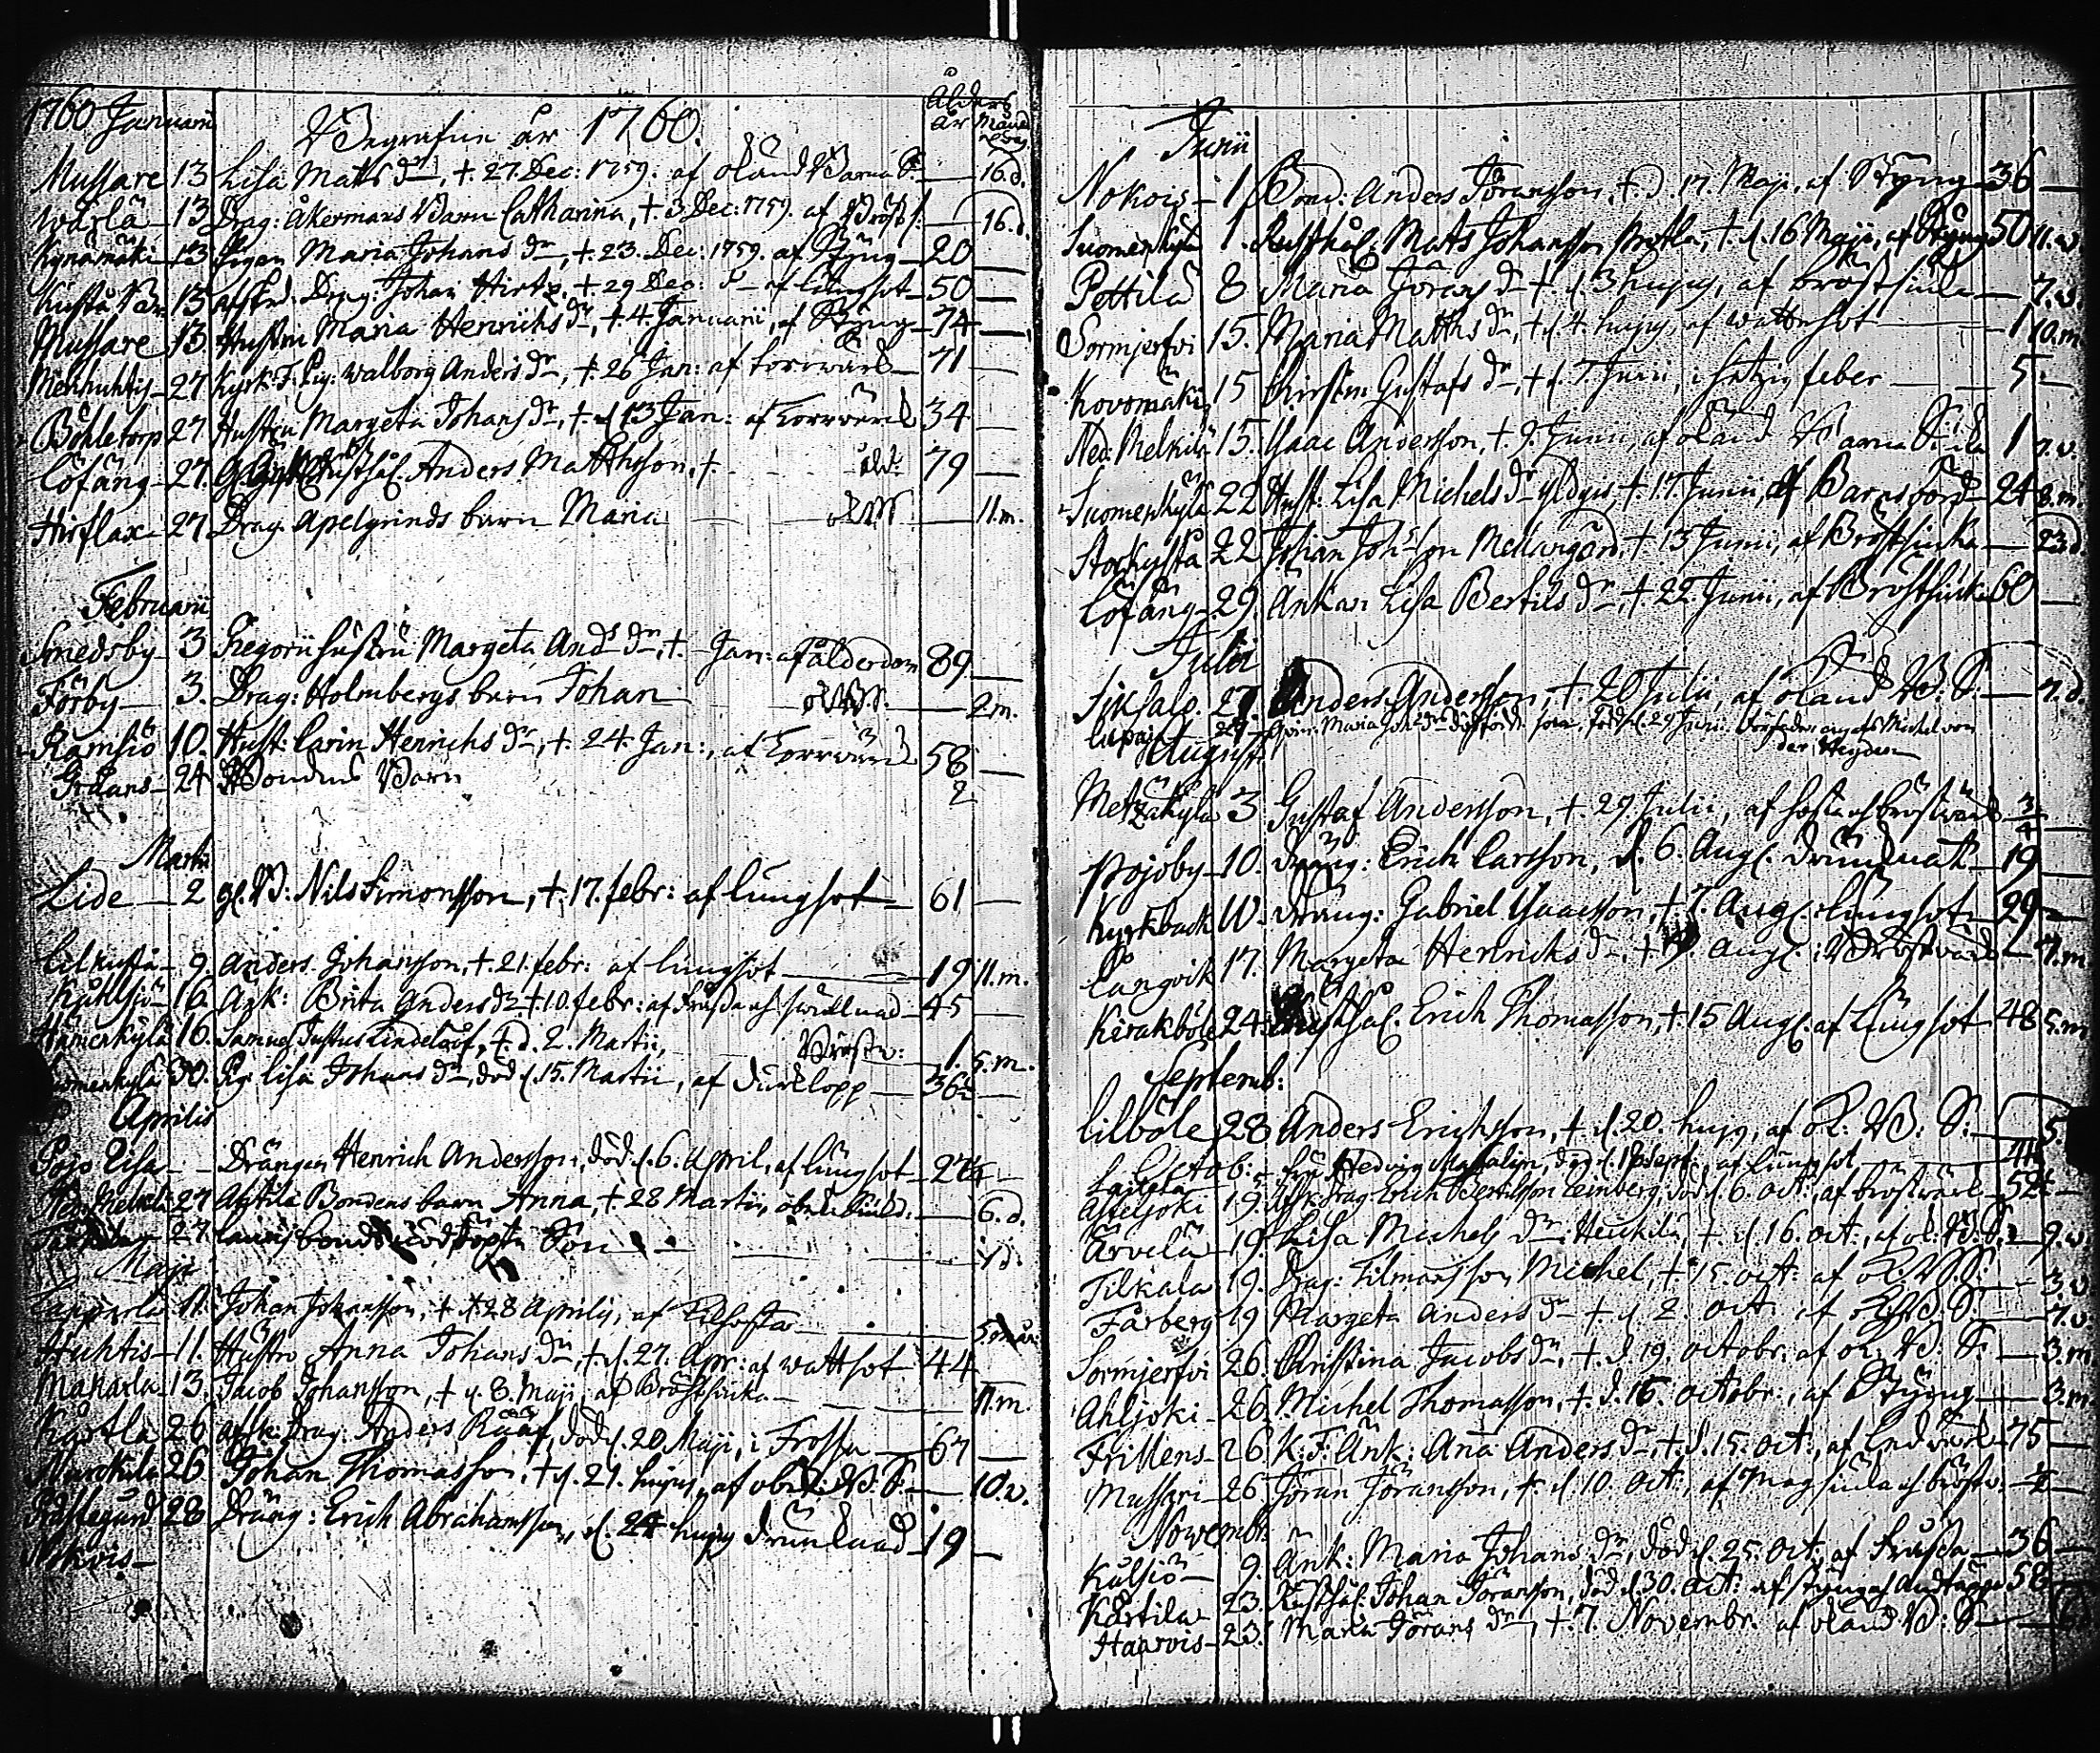 1760 Januarii
Begrafne år 1760.
Ålders
år Månad
Mussare 13 Lisa Matts dr, †. 27. Dec: 1759. af okänd Barna S. — 16.d.
Warla 13 Drag: Åkermans Barn Catharina, †. 3. Dec: 1759. af Bröst — 16.d.
Kynämäki 13 Pigan Maria Johans dr, †. 23. Dec: 1759. af Styng 20 —
Kusta 13 afsked: Drag: Johan Hirt, †. 29 Dec: af lungsot 50 —
Mussare 13 Hustru Maria Henrichs dr, †. 4. Januarii, af Styng 74 —
27 Kyrk: F: Pig: Walborg Anders dr, †. 26 Jan: af torrwärk 71 —
Böhletorp 27 Hustru Margeta Johans dr, †. d. 13 Jan: af Torrvärck 34 —
Löfäng 27. Rusthål. Anders Matthsson, † åld: 79 —
Hirslax 27 Drag. Apelgrinds barn Maria — — 11.m.
Februarii
Smedsby 3 Gregorii hustru Margeta Ands dr, †. — Jan: af ålderdom 89 —
Förby 3. Drag: Holmbergs barn Johan — — 2.m.
Ramsiö 10. Hust: Carin Henrichs dr, †. 24. Jan:, af Torrvärck 58 —
24 Bondens Barn 2
Martii
Lide 2 gl. B: Nils Simonsson, †. 17. febr: af lungsot 61 —
Lilkusta 9. Anders Johansson, †. 21. febr: af lungsot — 19 11.m.
16. Änk: Brita Anders dr †. 10. febr: af frossa och swullnad 45 —
Hämenkylä 16. Samuel Justus Lindelöf, †. d. 2. Martii, Bröstv: 1. 5.m.
Suomenkylä 30. Pig. Lisa Johans dr, död d. 15. Martii, af durklopp 36 —
Aprilis
Pojo Lisa — Drängen Henrich Andersson, död d. 6. April, af lungsot 27 —
Ned. Melkila 27 Anttila Bondens barn Anna, †. 28 Martii, obek. — 6.d.
27 bonds nödöpta Son — — 1 d.
Maji
11. Johan Johansson, †. d. 28 Aprilis, af Kikhosta — 5.mån:
Huhtis 11. Hustru Anna Johans dr, †. d. 27. Apr: af wattsot 44 —
Makarla 13. Jacob Johansson, † d. 8. Maji, af Bröstsiuka — 11.m.
Kärtla 26 afsk: Drag: Anders Rääf, död d. 20 Maji, i Frossa 67 —
26 Johan Thomasson, † d. 21. hujus, af obek: B: S: — 10.v.
Prästegård 28 Dräng: Erich Abrahamsson, d. 24 hujus drunknad 19 —
Nokois —
Junii
Nokois 1 Bond: Anders Jöransson, † d. 17. Maji, af Styng 36 —
Suomenkylä 1. Rusthål. Mats Johansson Prötla, †. d. 16 Maji, af Styng 50 11.v.
Pettilä 8 Maria Görans dr † d. 3 hujus, af bröstsiuka — 7.v.
Sormjerfvi 15. Maria Matths dr, † d. 4. hujus, af wattusot — 1 10.m.
Kovomäki 15 Kirstin Gustafs dr, † d. 7 Junii, i hetzig feber — 5 —
Ned: Melkila 15. Isaac Andersson, †. 9. Junii, af okänd Barna Siuka 1 7.v.
Suomenkylä 22 Hust: Lisa Michels dr, †. 17. Junii, af Barns börd 24 8.m.
Storkysta 22 Johan Johsson Mellangård, †. 13 Junii, af Bröstsiuka — 22d.
Löfäng 29. Änkan Lisa Bertils dr, †. 22. Junii, af Bröstsiuka 60 —
Julii
Siksalo. 27. Anders Andersson, †. 20 Julii, af okänd B: S: — 7.d.
27 Maria Joh: dr dödfödde son, född d. 29 Junii. Michel von
der Heyden
Augusti
Metzäkylä 3 Gustaf Andersson, †. 29. Julii, af hosta och bröstvärck 3/4 —
Pojoby 10. Dräng: Erich Carlsson, d. 6. Aug. drunknat 19 —
Kyrkback 10. Dräng: Gabriel Isaacsson, † 7. Aug. lungsot 29 —
Långvik 17. Margeta Henrichs dr, † 9. Aug. i Bröstvärck 7.m.
Kerakböle 24. Rusthål. Erich Thomasson, † 15 Aug. af lungsot 48 5.m.
Septemb:
Lilböle 28 Anders Erichsson, † d. 20. hujus, af O: B: S: — 5.
Octob: Hedvig Magalijn, död d. 1 Sept. af lungsot 44
Asteljoki 19. Afsk: Drag Erich Bertilsson Leinberg, död d. 6. Oct:, af bröstvärck 52 —
Ärvilä 19. Lisa Michels dr: Heikila, †. d. 16. Oct:, af ok: B: S: — 9.v.
Tilkala 19. Drag: Tilmansson, Michel, † 15. Oct: af O. B. S: — 3.v.
Färberg 19 Margeta Anders dr †. d 2. Oct. af O: B: S: — 7.v.
Sormjerfvi 26. Christina Jacobs dr, †. d. 19. Octobr: af ok: B: S: — 3.m.
Ahljoki 26. Michel Thomasson, †. d. 16. Octobr:, af Styng — 3.m.
Frillens 26 K: F: Änk: Ana Anders dr, †. d. 15. Oct:, af Endvärk 75 —
Mussari 26 Jöran Jöransson, †. d 10. Oct:, af Magsiuka och bröstv. —
Novembr:
Kulsiö 9. Änk: Maria Johans dr, död d. 25. Oct:, af Frossa 36 —
Kärtila 23. Rusthål. Johan Jöransson, död d. 30. Oct: af styng och Andtäppa 58 —
Haarvis 23. Maria Jörans dr, †. 7. Novembr: af okänd B: S —